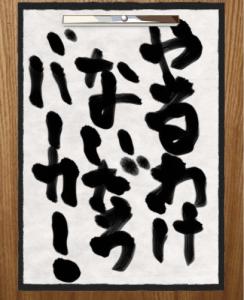 やるわけ
ないだろ
バーカー!